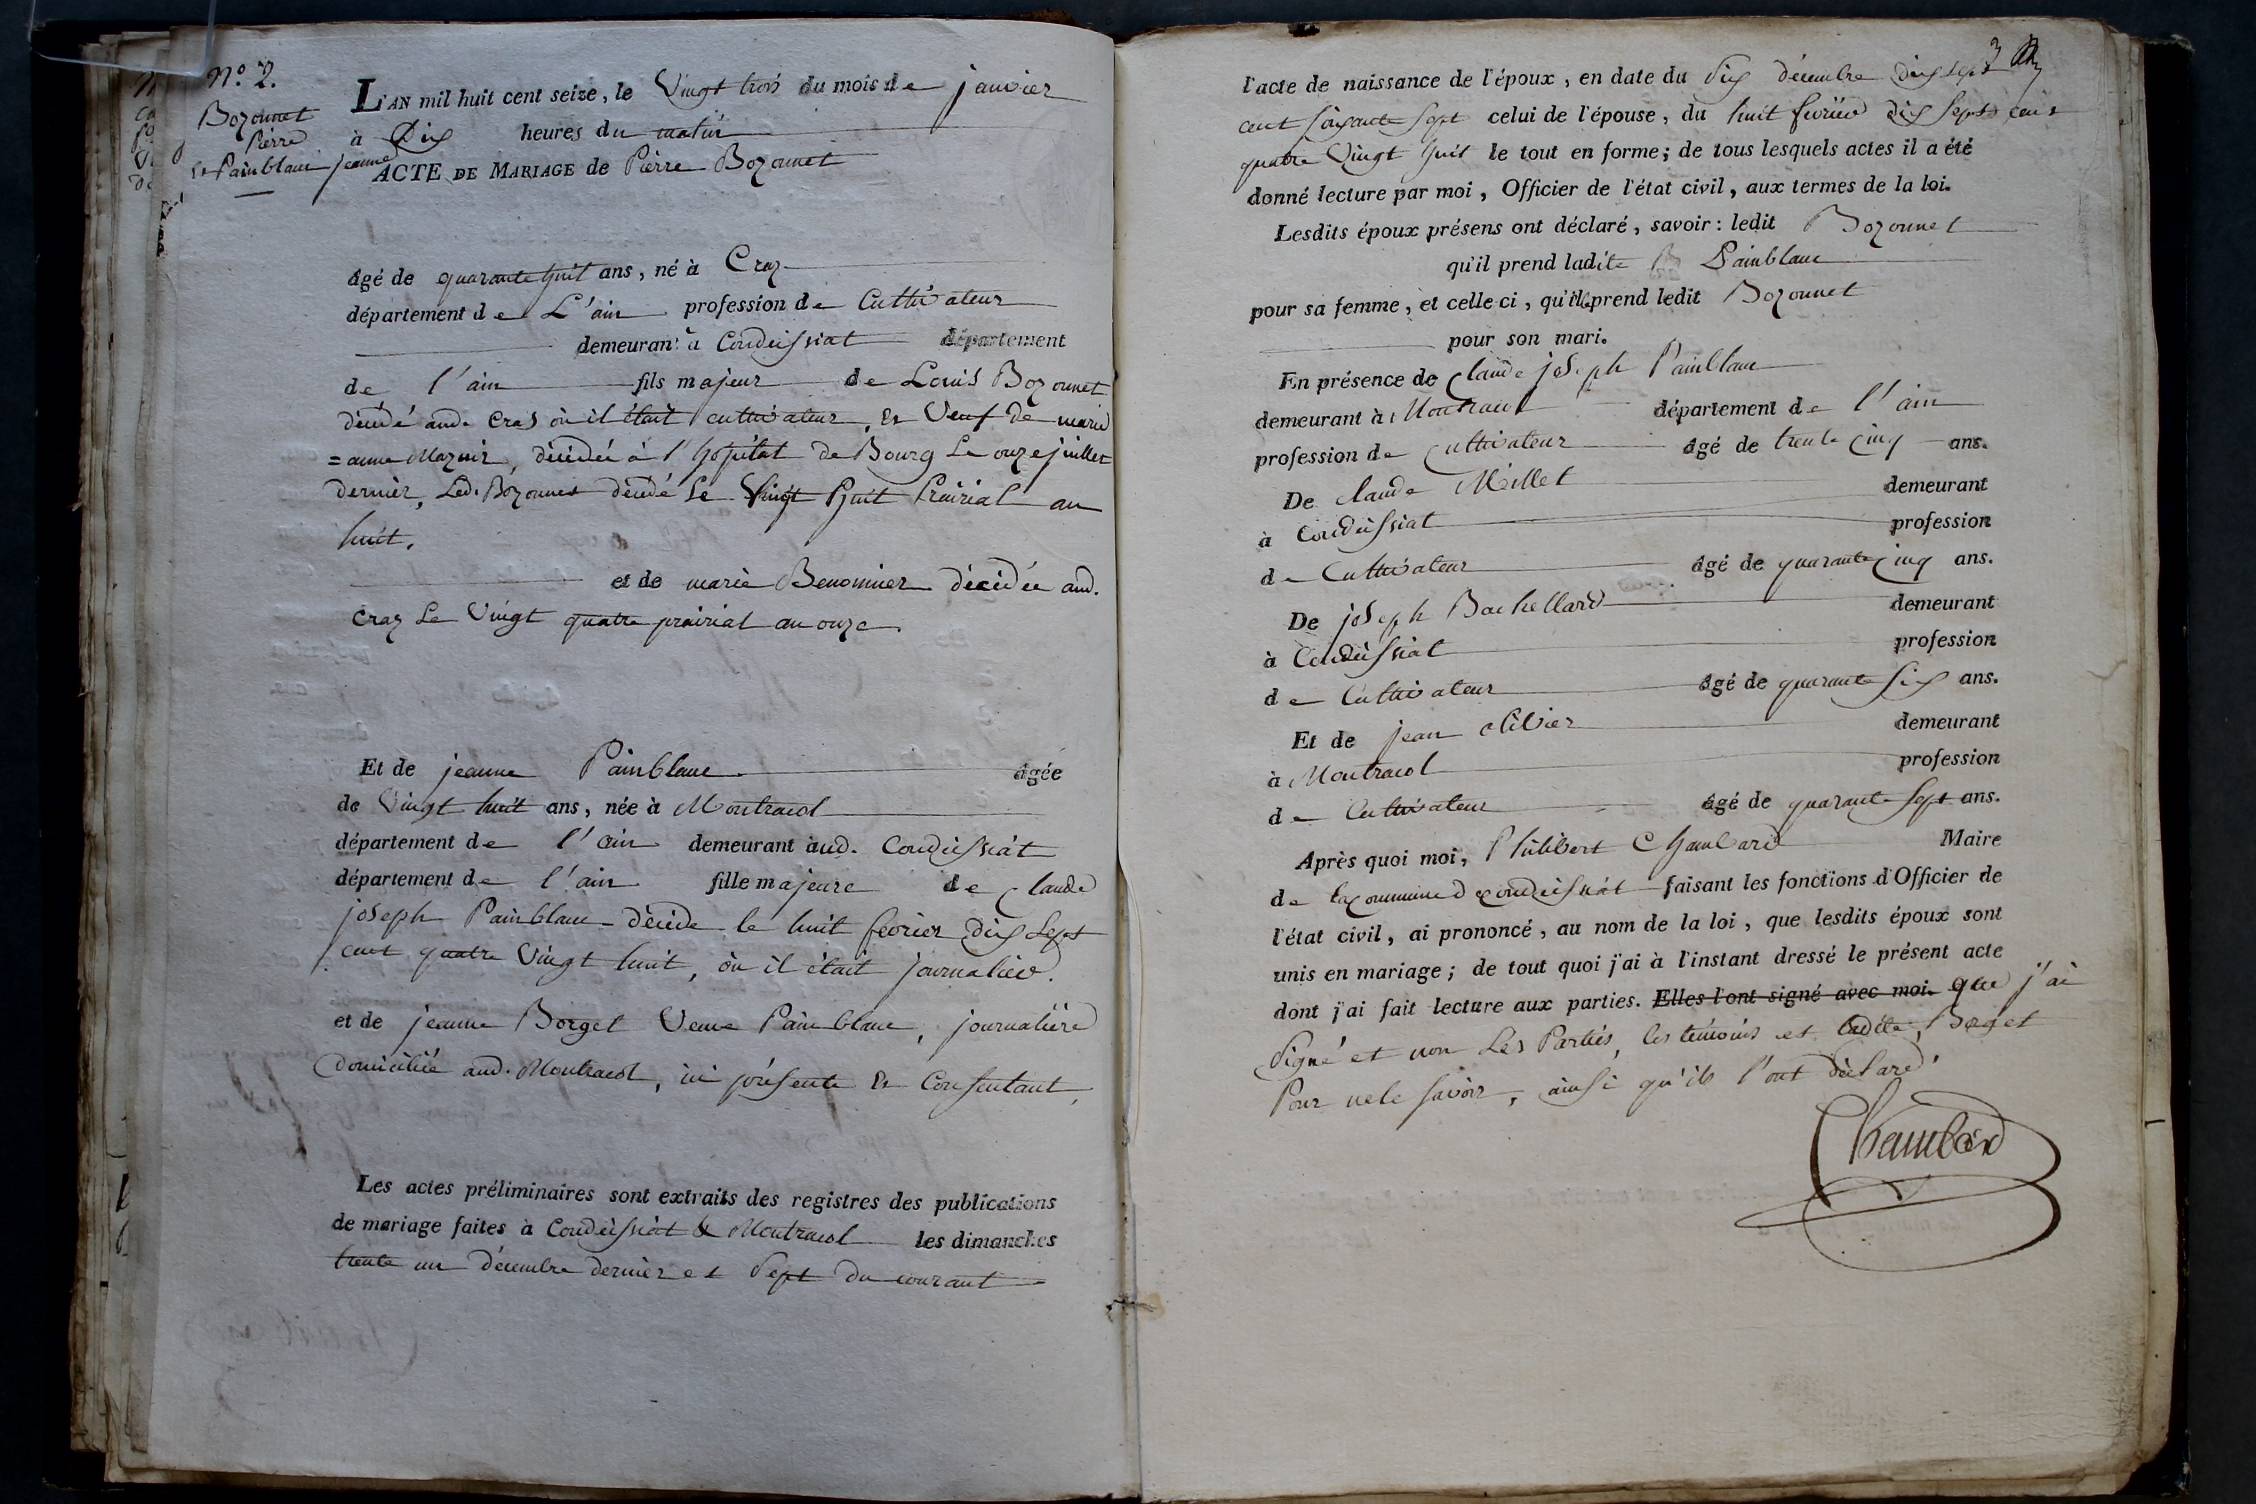 N.° 2.
Bozonnet
Pierre
et Painblanc jeanne
L'AN mil huit cent seize, le Vingt trois du mois de janvier
à Dix heures du matin
ACTE DE MARIAGE de Pierre Bozonnet
âgé de quarante huit ans, né à Craz
département de L'ain profession de Cultivateur
demeurant à Condeissiat département
de l'ain fils majeur de Louis Bozonnet
décédé aud. Cras où il était cultivateur, et Veuf de marie
= anne Maznir, décédée à l'hôpital de Bourg Le onze juillet
dernier, Led. Bozonnet décédé Le Vingt Huit Prairial an
huit.
et de marie Benomier décédée aud.
Craz Le Vingt quatre prairial an onze.
Et de jeanne Painblanc âgée
de Vingt huit ans, née à Montracol
département de l'ain demeurant aud. Condeissiat
département de l'ain fille majeure de Claude
joseph Painblanc décédé le huit février dix sept
cent quatre Vingt huit, où il était journalier.
et de jeanne Borget Veuve Painblanc, journalière
Domiciliée aud. Montracol, ici présente et Consentant,
Les actes préliminaires sont extraits des registres des publications
de mariage faites à Condeissiat & Montracol les dimanches
trente un décembre dernier et Sept du courant
3
l'acte de naissance de l'époux, en date du Six décembre dix sept
cent soixante sept celui de l'épouse, du huit février dix sept cent
quatre Vingt huit le tout en forme; de tous lesquels actes il a été
donné lecture par moi, Officier de l'état civil, aux termes de la loi.
Lesdits époux présens ont déclaré, savoir: ledit Bozonnet
qu'il prend ladite Painblanc
pour sa femme, et celle ci, qu'ille prend ledit Bozonnet
pour son mari.
En présence de Claude joseph Painblanc
demeurant à Montracol département de l'ain
profession de Cultivateur âgé de trente cinq ans.
De Claude Millet demeurant
à Condeissiat profession
de Cultivateur âgé de quarante cinq ans.
De joseph Bachellard demeurant
à Condeissiat profession
de Cultivateur âgé de quarante six ans.
Et de jean olivier demeurant
à Montracol profession
de Cultivateur âgé de quarante sept ans.
Après quoi moi, Philibert Chambard Maire
de la commune de Condeissiat faisant les fonctions d'Officier de
l'état civil, ai prononcé, au nom de la loi, que lesdits époux sont
unis en mariage; de tout quoi j'ai à l'instant dressé le présent acte
dont j'ai fait lecture aux parties. Elles l'ont signé avec moi. que j'ai
Signé et non Les Parties, les témoins et ladite, Borget
Pour ne le savoir, ainsi qu'ils l'ont déclaré.
Chambard